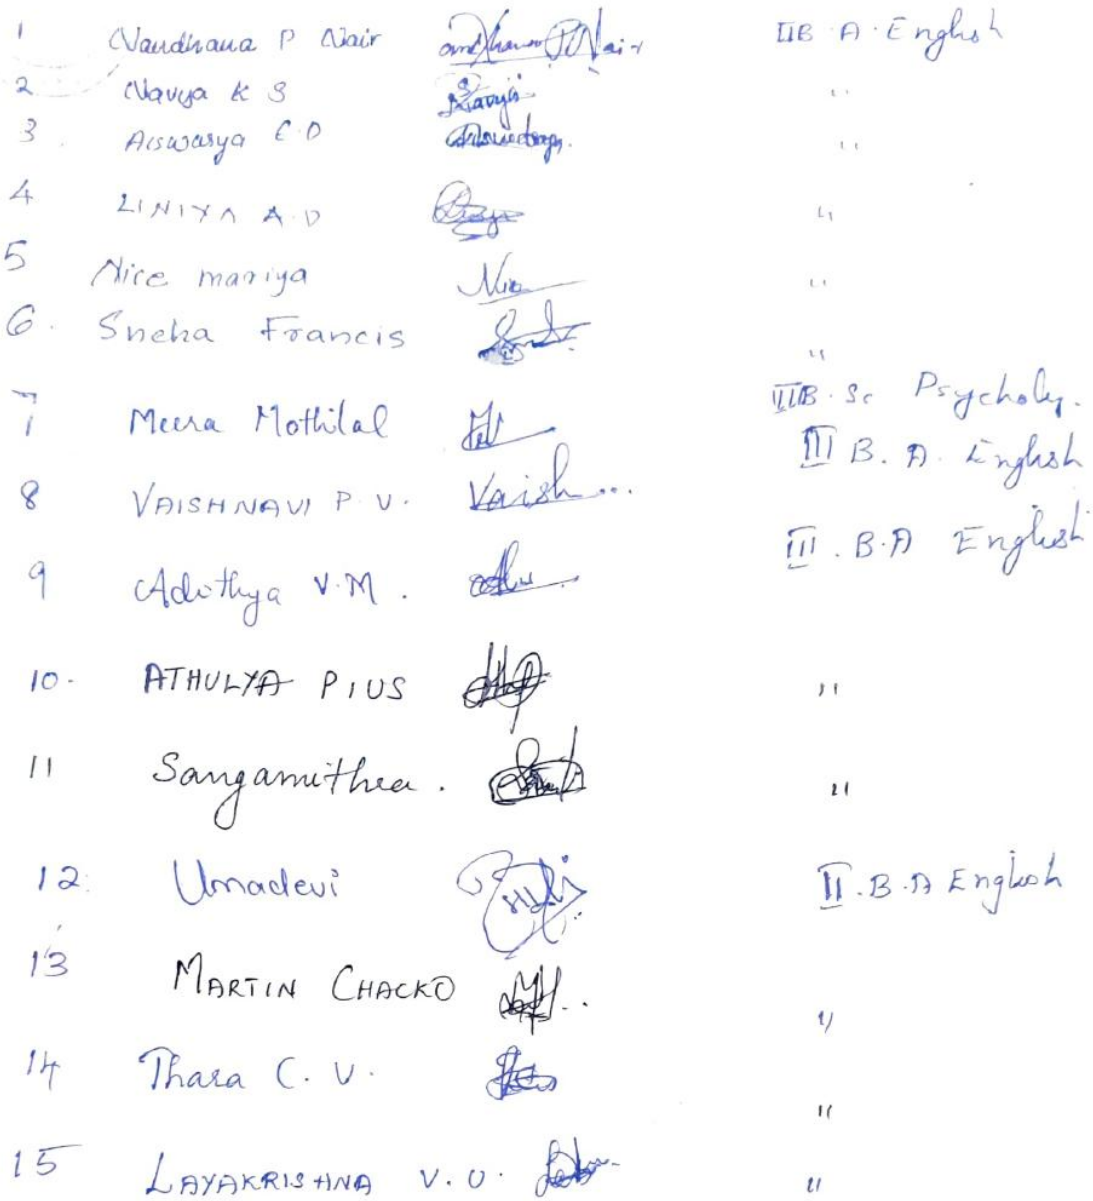 1 Vandhana P Nair andhana P Nair IIB.A.English
2 Navya K S Navya "
3. Aiswarya C.D "
4 LINIYA A.D "
5 Nice mariya Nice "
6. Sneha Francis "
7 Meera Mothilal IIIB.Sc Psycholy.
8 VAISHNAVI P.V. Vaish... III B.A. English
9 Adithya V.M. III.B.A English
10. ATHULYA PIUS "
11 Sangamithra. "
12. Umadevi II.B.A English
13 MARTIN CHACKO "
14 Thara C.V. "
15 LAYAKRISHNA V.U. "